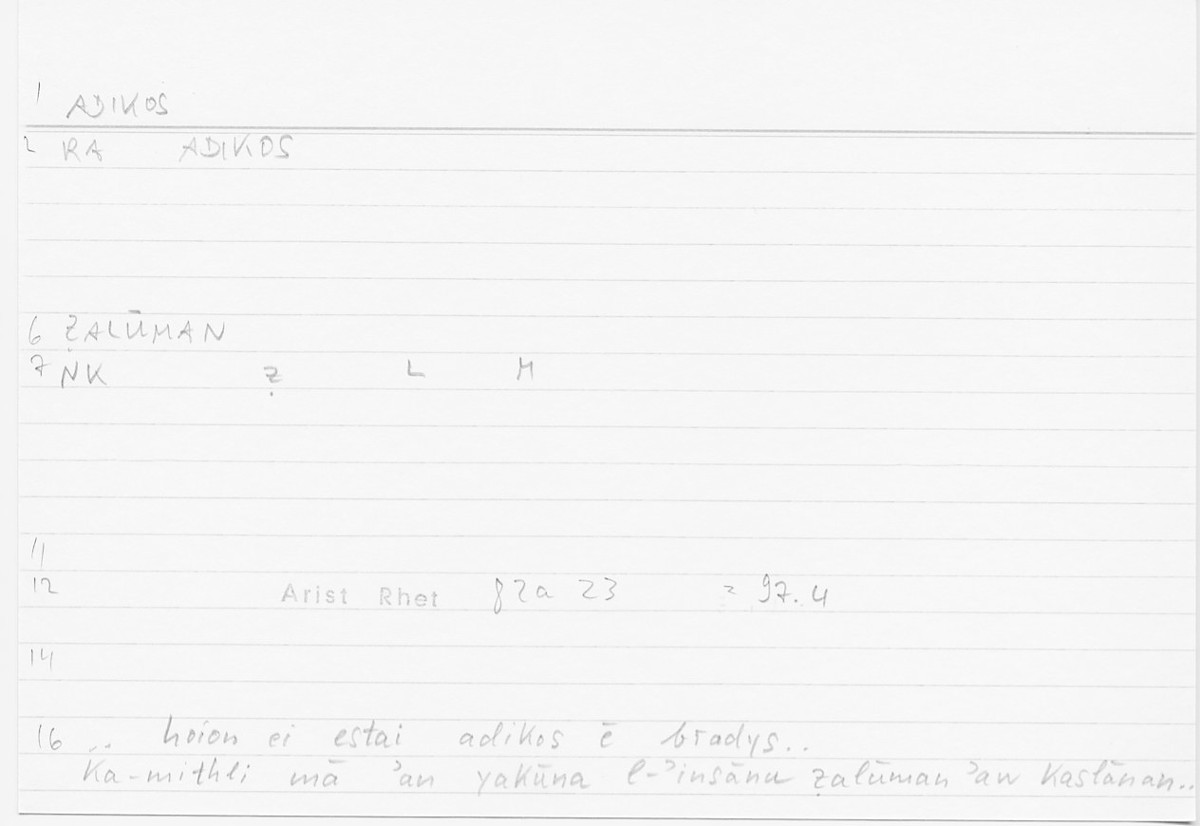 1 ADIKOS
2 RA ADIKOS
6 ẒALŪMAN
7 NK Ẓ L M
11
12 Arist Rhet 82a 23 = 97.4
14
16 .. hoion ei estai adikos ē bradys..
Ka-mithli mā ʾan yakūna l-ʾinsānu ẓalūman ʾaw Kaslānan..